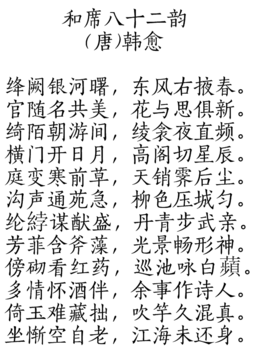 和席八十二韵
(唐)韩愈
绛阙银河曙，东风右掖春。
官随名共美，花与思俱新。
绮陌朝游间，绫衾夜直频。
横门开日月，高阁切星辰。
庭变寒前草，天销霁后尘。
沟声通苑急，柳色压城匀。
纶綍谋猷盛，丹青步武亲。
芳菲含斧藻，光景畅形神。
傍砌看红药，巡池咏白蘋。
多情怀酒伴，余事作诗人。
倚玉难藏拙，吹竽久混真。
坐惭空自老，江海未还身。